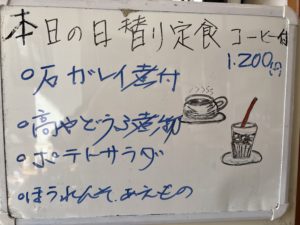 本日の日替り定食 コーヒー付
1.200円
○石ガレイ煮付
○高やどうふ煮物
○ポテトサラダ
○ほうれんそ.あえもの